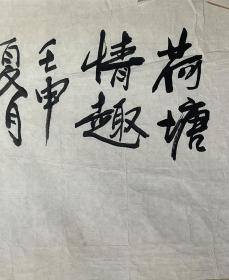 荷塘
情趣
壬申
夏月